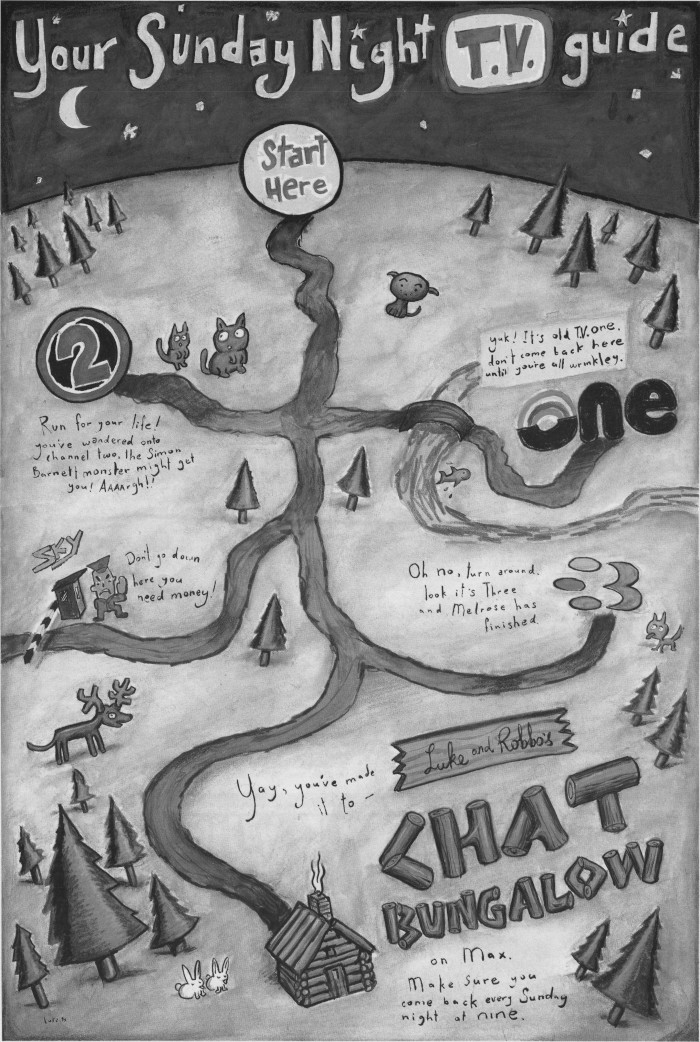 Your Sunday Night T.V. guide
Start
Here
2
Run for your life!
you've wandered onto
channel two, the Simon
Barnett monster might get
you! AAAArgh!!
yuk! It's old T.V. one.
don't come back here
until you're all wrinkley.
one
SKY
Don't go down
here you
need money!
Oh no, turn around.
look it's Three
and Melrose has
finished
3
Yay, you've made
it to –
Luke and Robbo's
CHAT
BUNGALOW
on Max.
Make Sure you
come back every Sunday
night at nine.